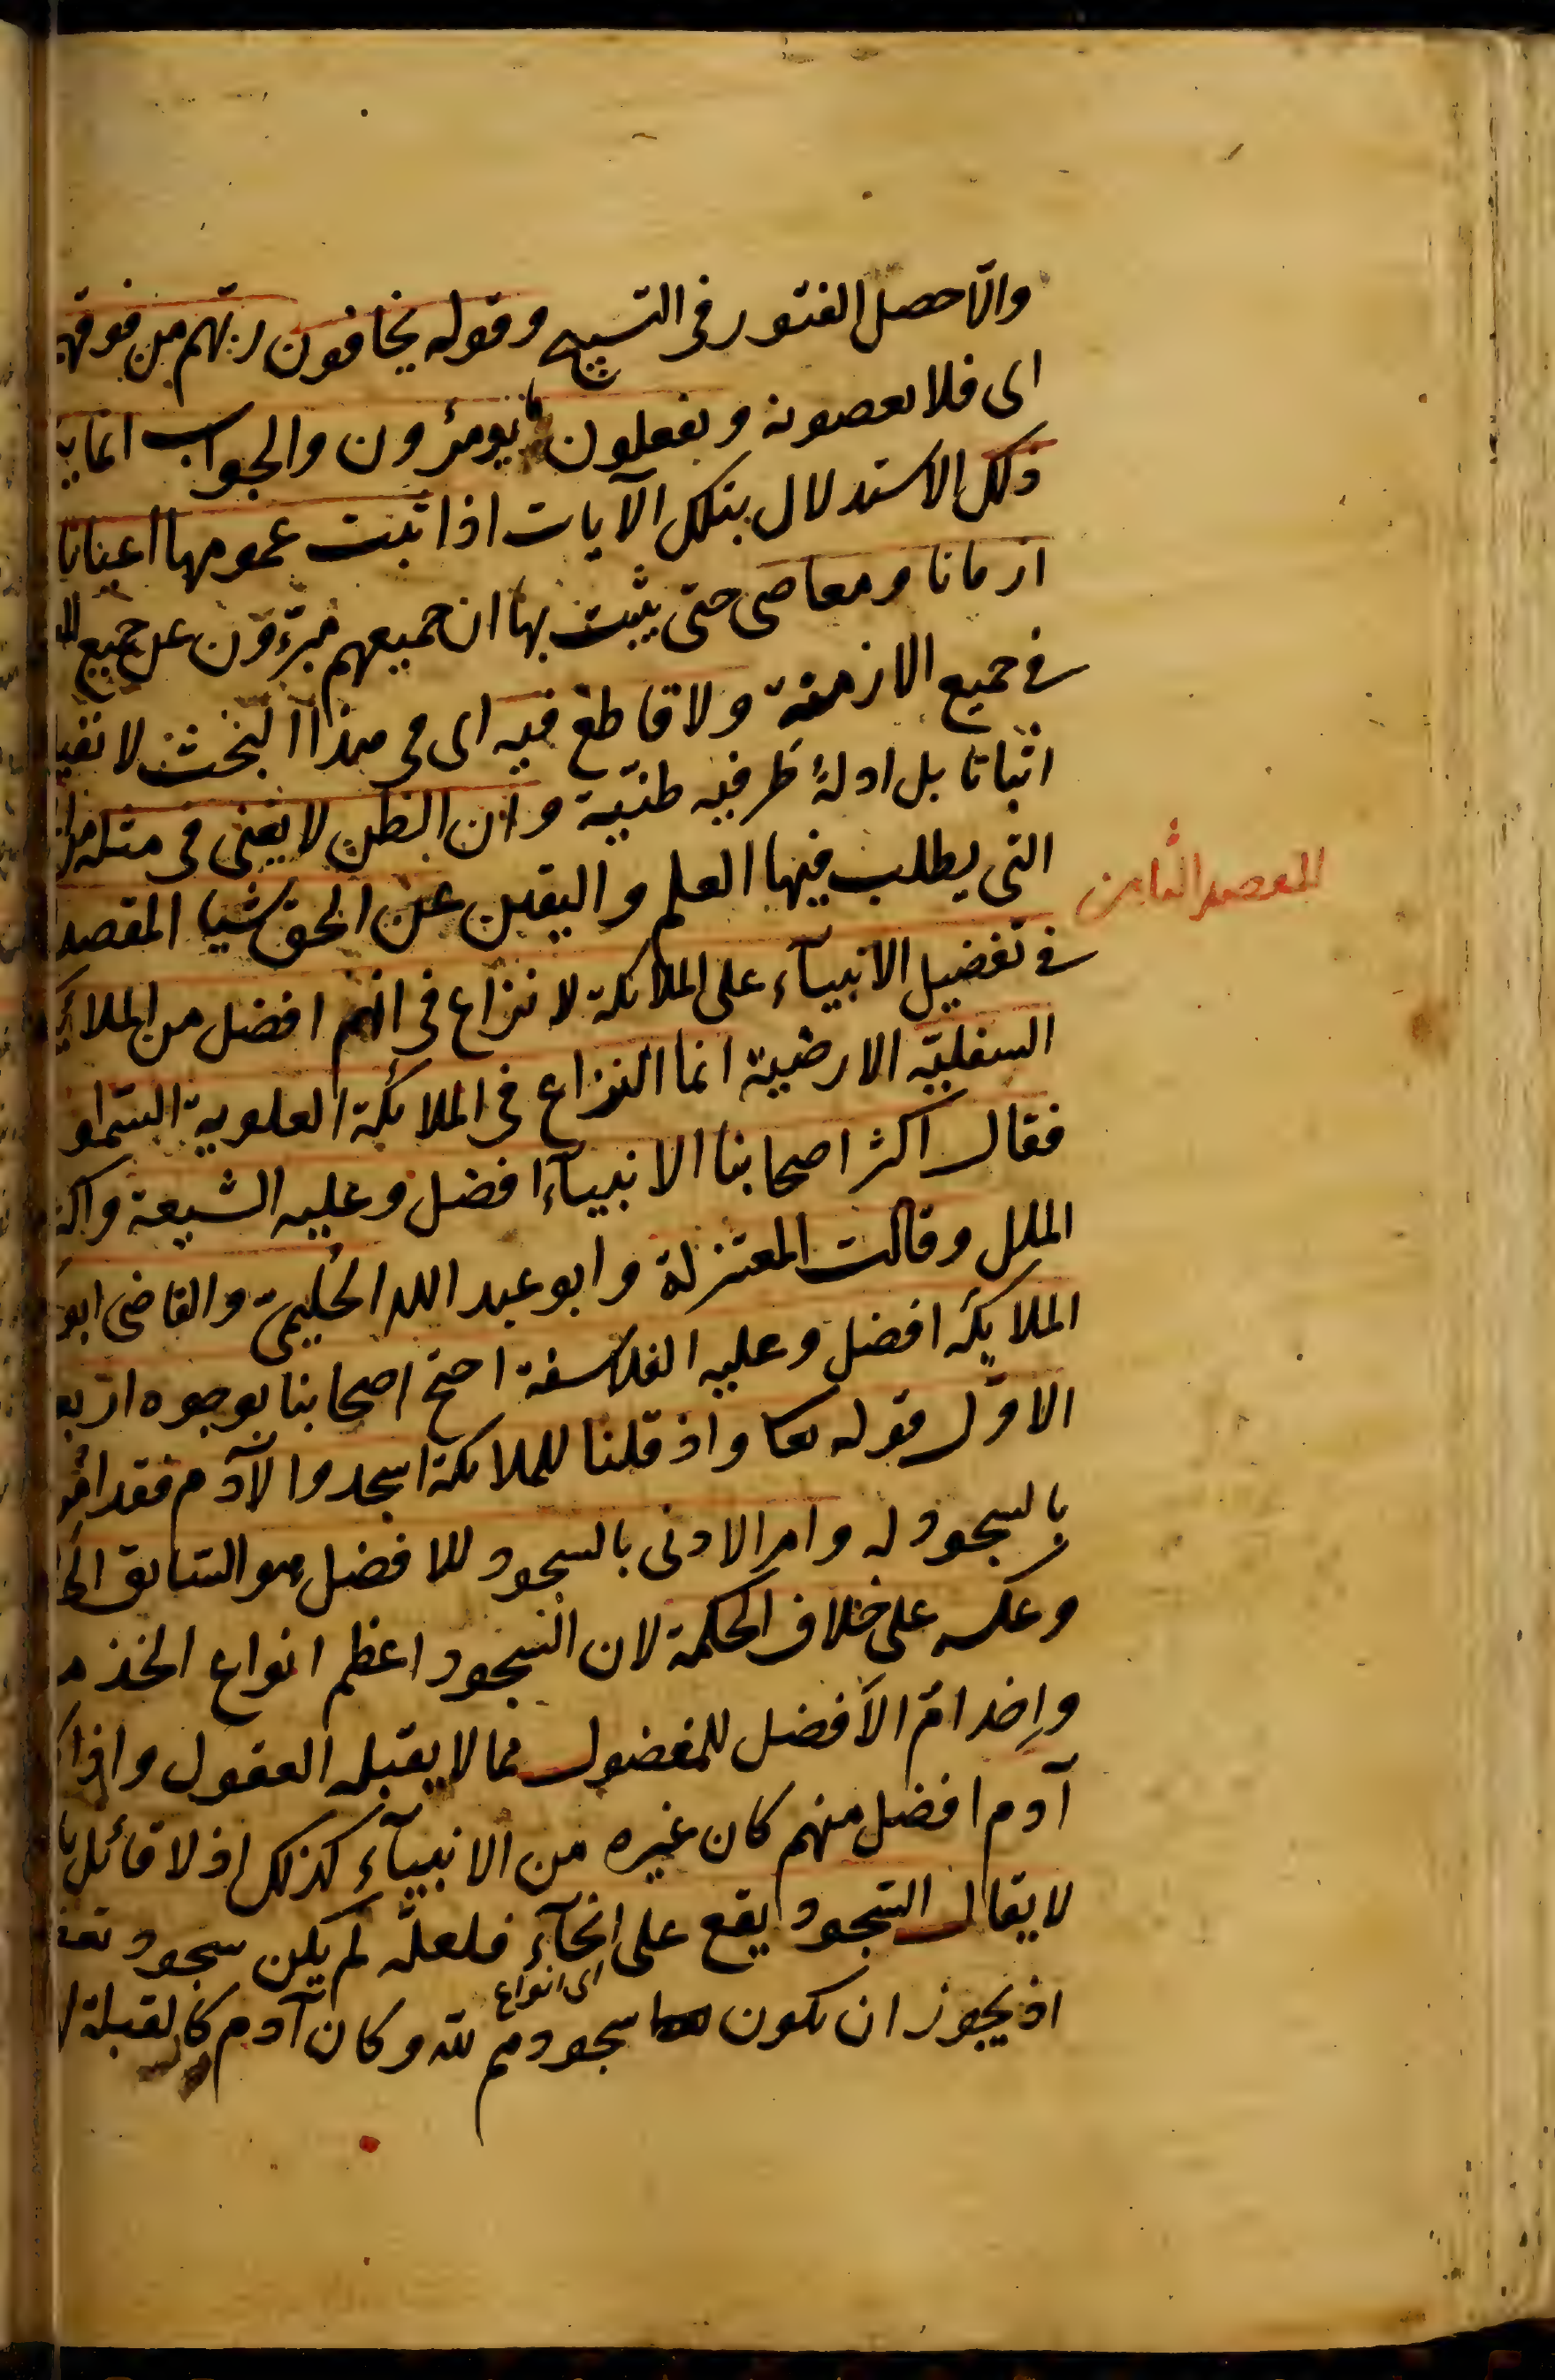 والّا حصل الفتور فى التسبيح وقوله يخافون ربّهم من فوقهم
اى فلا يعصونه ويفعلون ما يؤمرون والجواب انما
ذلك الاستدلال بتلك الآيات اذا ثبت عمومها اعيانا
ازمانا ومعاصى حتى يثبت بها ان جميعهم مبرّؤون عن جميع
فى جميع الازمنة ولا قاطع فيه اى فى هذا البحث لا نفيا
اثباتا بل ادلة طرفيه ظنّية وان الظن لا يغنى فى مثله
التى يطلب فيها العلم واليقين عن الحق شيا المقصد
المقصد الثامن
فى تفضيل الانبيآء على الملائكة لا نزاع فى انهم افضل من الملائكة
السفليّة الارضية انما النزاع فى الملائكة العلوية السّماو
فقال اكثر اصحابنا الانبيآء افضل وعليه الشيعة واكثر
الملل وقالت المعتزلة وابو عبد الله الحُليمىّ والقاضى ابو
الملايكة افضل وعليه الفلاسفة احتج اصحابنا بوجوه اربعة
الاوّل قوله تعا واذ قلنا للملائكة اسجدوا لآدم فقد امروا
بالسجود له وامر الادنى بالسجود للافضل هو السّابق الى
وعكسه على خلاف الحكمة لان السجود اعظم انواع الخدمة
واِخدامُ الأفضل للمفضول مما لا يقبله العقول واذا
آدم افضل منهم كان غيره من الانبيآء كذلك اذ لا قائل با
لا يقال السّجود يقع على انحآء فلعلّه لم يكن سجود تعظ
اى انواع
اذ يجوز ان يكون سجودهم لله وكان آدم كالقبلة